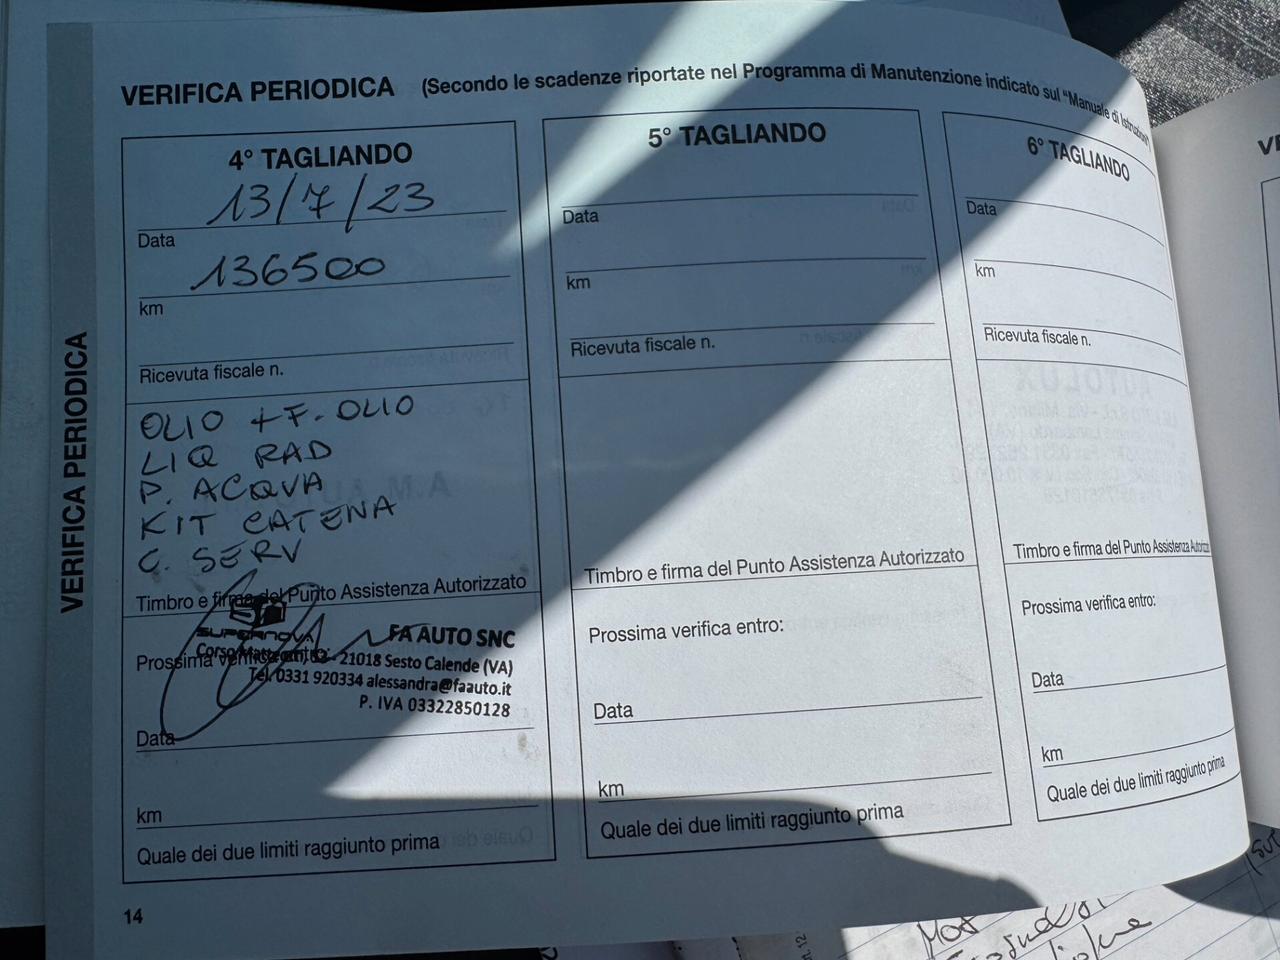 VERIFICA PERIODICA (Secondo le scadenze riportate nel Programma di Manutenzione indicato sul "Manuale di Istruzioni")
VERIFICA PERIODICA
4° TAGLIANDO
13/7/23
Data
136500
km
Ricevuta fiscale n.
OLIO + F. OLIO
LIQ RAD
P. ACQVA
KIT CATENA
C. SERV
Timbro e firma del Punto Assistenza Autorizzato
SUPERNOVA
FA AUTO SNC
Corso Matteotti, - 21018 Sesto Calende (VA)
Tel. 0331 920334 alessandra@faauto.it
P. IVA 03322850128
Prossima verifica entro:
Data
km
Quale dei due limiti raggiunto prima
5° TAGLIANDO
Data
km
Ricevuta fiscale n.
Timbro e firma del Punto Assistenza Autorizzato
Prossima verifica entro:
Data
km
Quale dei due limiti raggiunto prima
6° TAGLIANDO
Data
km
Ricevuta fiscale n.
Timbro e firma del Punto Assistenza Autorizzato
Prossima verifica entro:
Data
km
Quale dei due limiti raggiunto prima
14